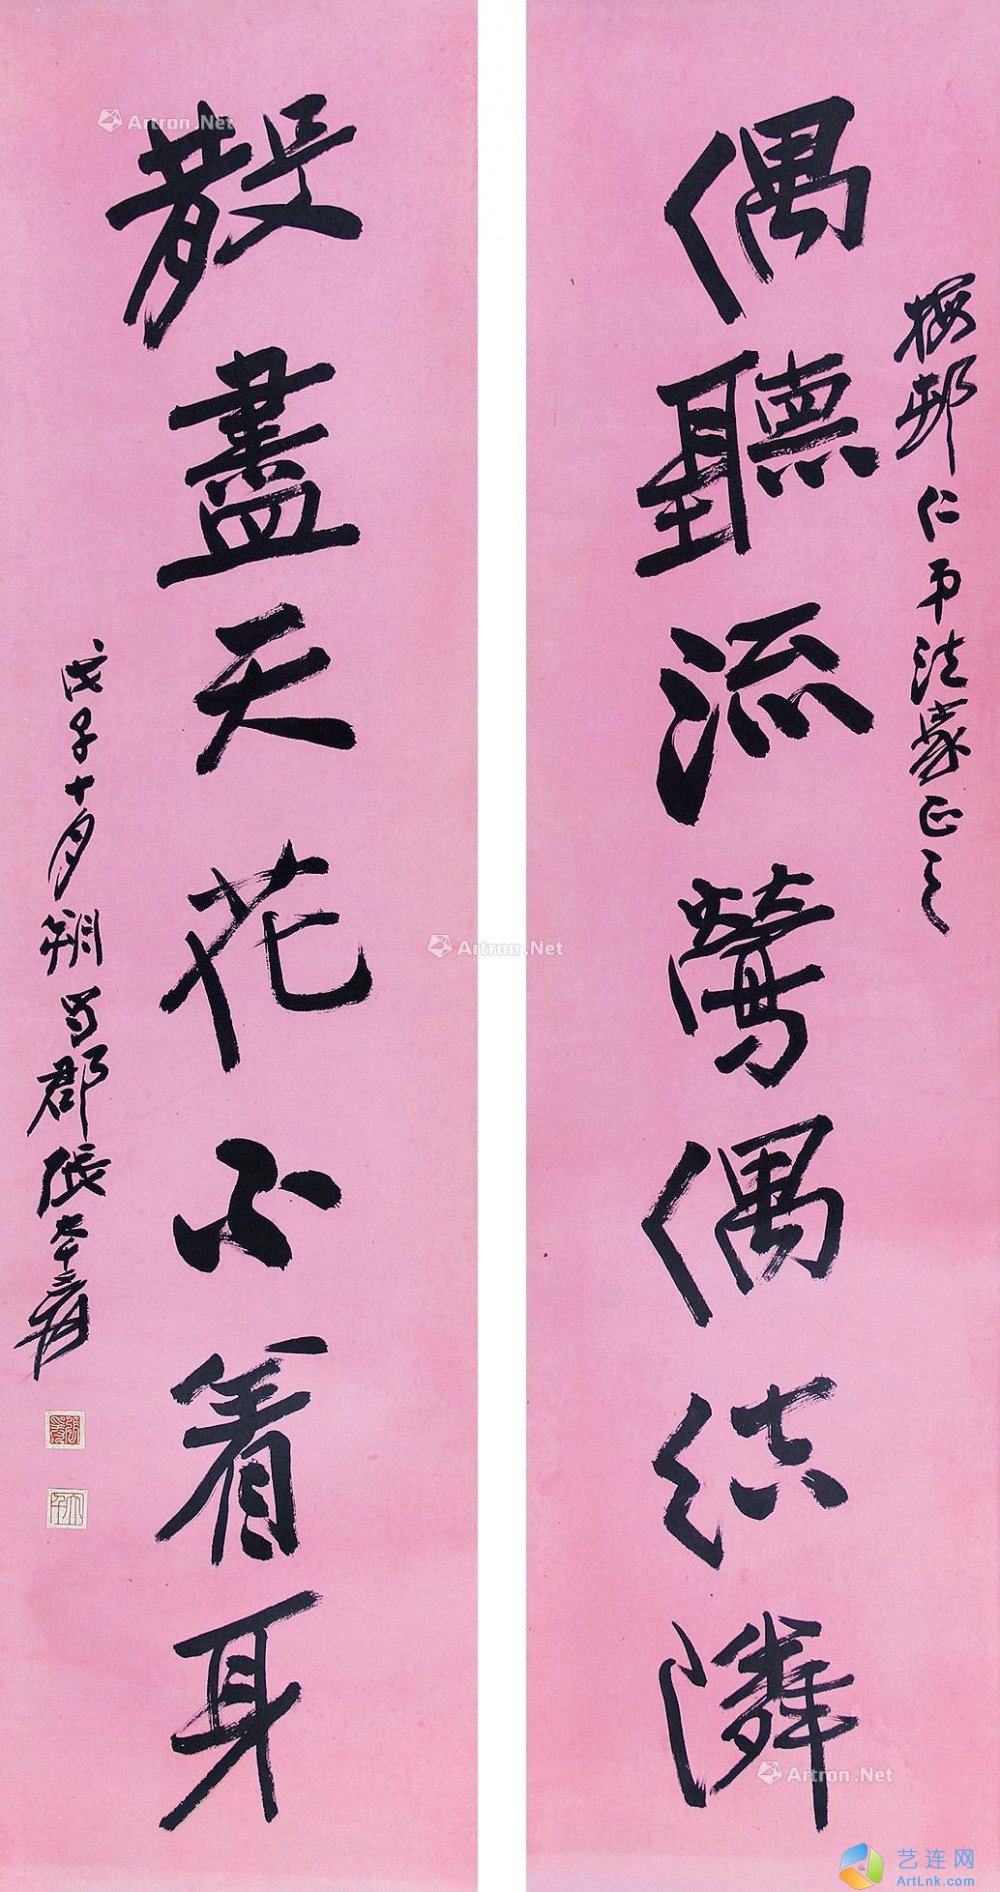 偶聽流鶯偶結隣
梅邨仁弟法家正之
散盡天花不著身
戊子十月朔蜀郡張大千爰
張爰
大千
Artron.Net
Artron.Net
Artron.Net
艺连网
ArtLnk.com